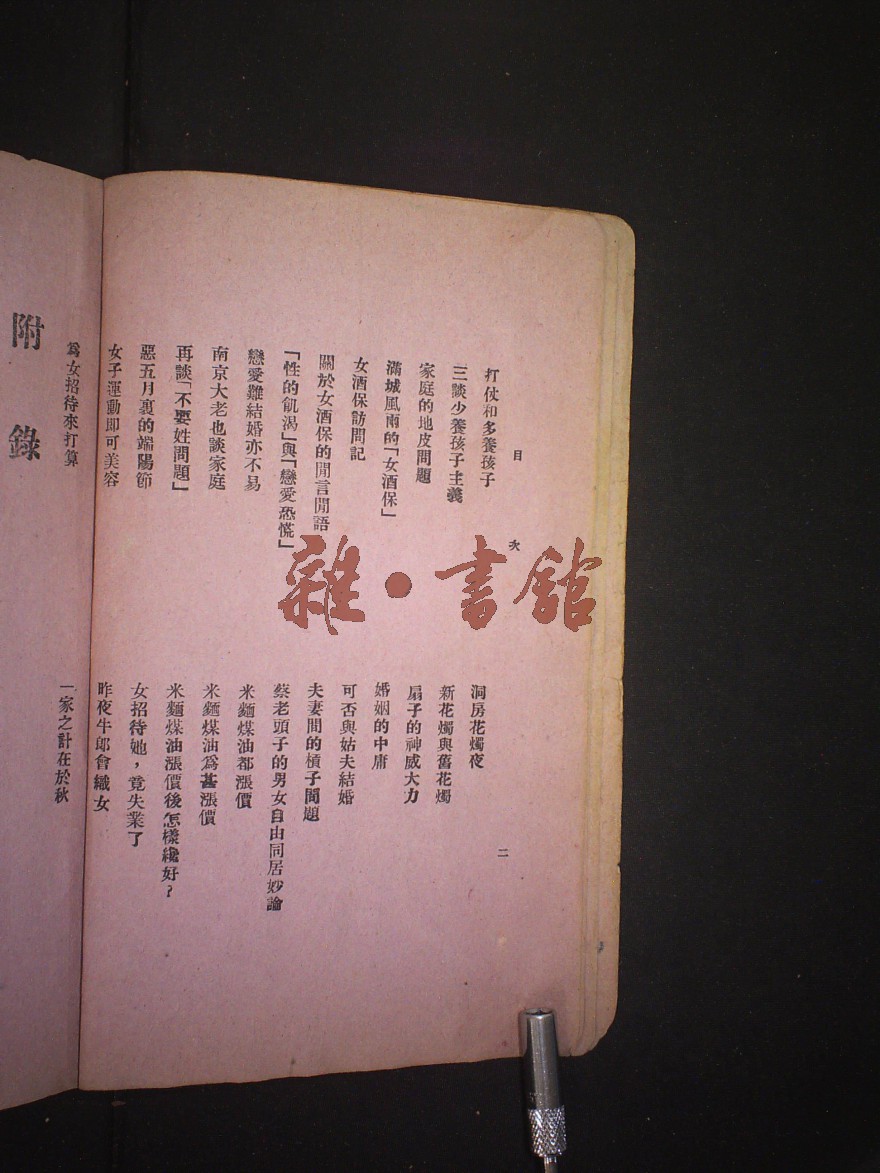 目次
二
打仗和多養孩子
三談少養孩子主義
家庭的地皮問題
滿城風雨的「女酒保」
女酒保訪問記
關於女酒保的閒言閒語
「性的飢渴」與「戀愛恐慌」
戀愛難結婚亦不易
南京大老也談家庭
再談「不要姓問題」
惡五月裏的端陽節
女子運動即可美容
為女招待來打算
洞房花燭夜
新花燭與舊花燭
扇子的神威大力
婚姻的中庸
可否與姑夫結婚
夫妻間的槓子問題
蔡老頭子的男女自由同居妙論
米麵煤油都漲價
米麵煤油為甚漲價
米麵煤油漲價後怎樣纔好?
女招待她,竟失業了
昨夜牛郎會織女
一家之計在於秋
附錄
雜·書館